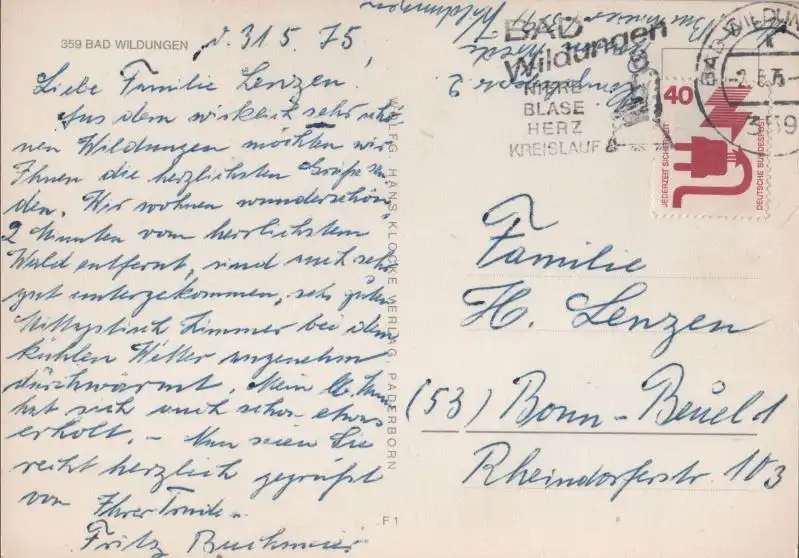 359 BAD WILDUNGEN d. 31. 5. 75
Liebe Familie Lenzen!
Aus dem wirklich sehr schö
nen Wildungen möchten wir
Ihnen die herzlichsten Grüße sen
den. Wir wohnen wunderschön
2 Minuten vom herrlichsten
Wald entfernt, sind auch sehr
gut untergekommen, sehr guten
Mittagstisch Zimmer bei dem
kühlen Wetter angenehm
durchwärmt. Mein lb. Mann
hat sich auch schon etwas
erholt. – Nun seien Sie
recht herzlich gegrüßt
von Ihrer Trude
Fritz Buchmeier
WOLFG. HANS KLOCKE VERLAG, PADERBORN
F 1
BAD
Wildungen
NIERE
BLASE
HERZ
KREISLAUF
BAD WILDUN
-2.6.75-
359
40
JEDERZEIT SICHERHEIT
DEUTSCHE BUNDESPOST
Familie
H. Lenzen
(53) Bonn-Beuel 1
Rheindorferstr. 103